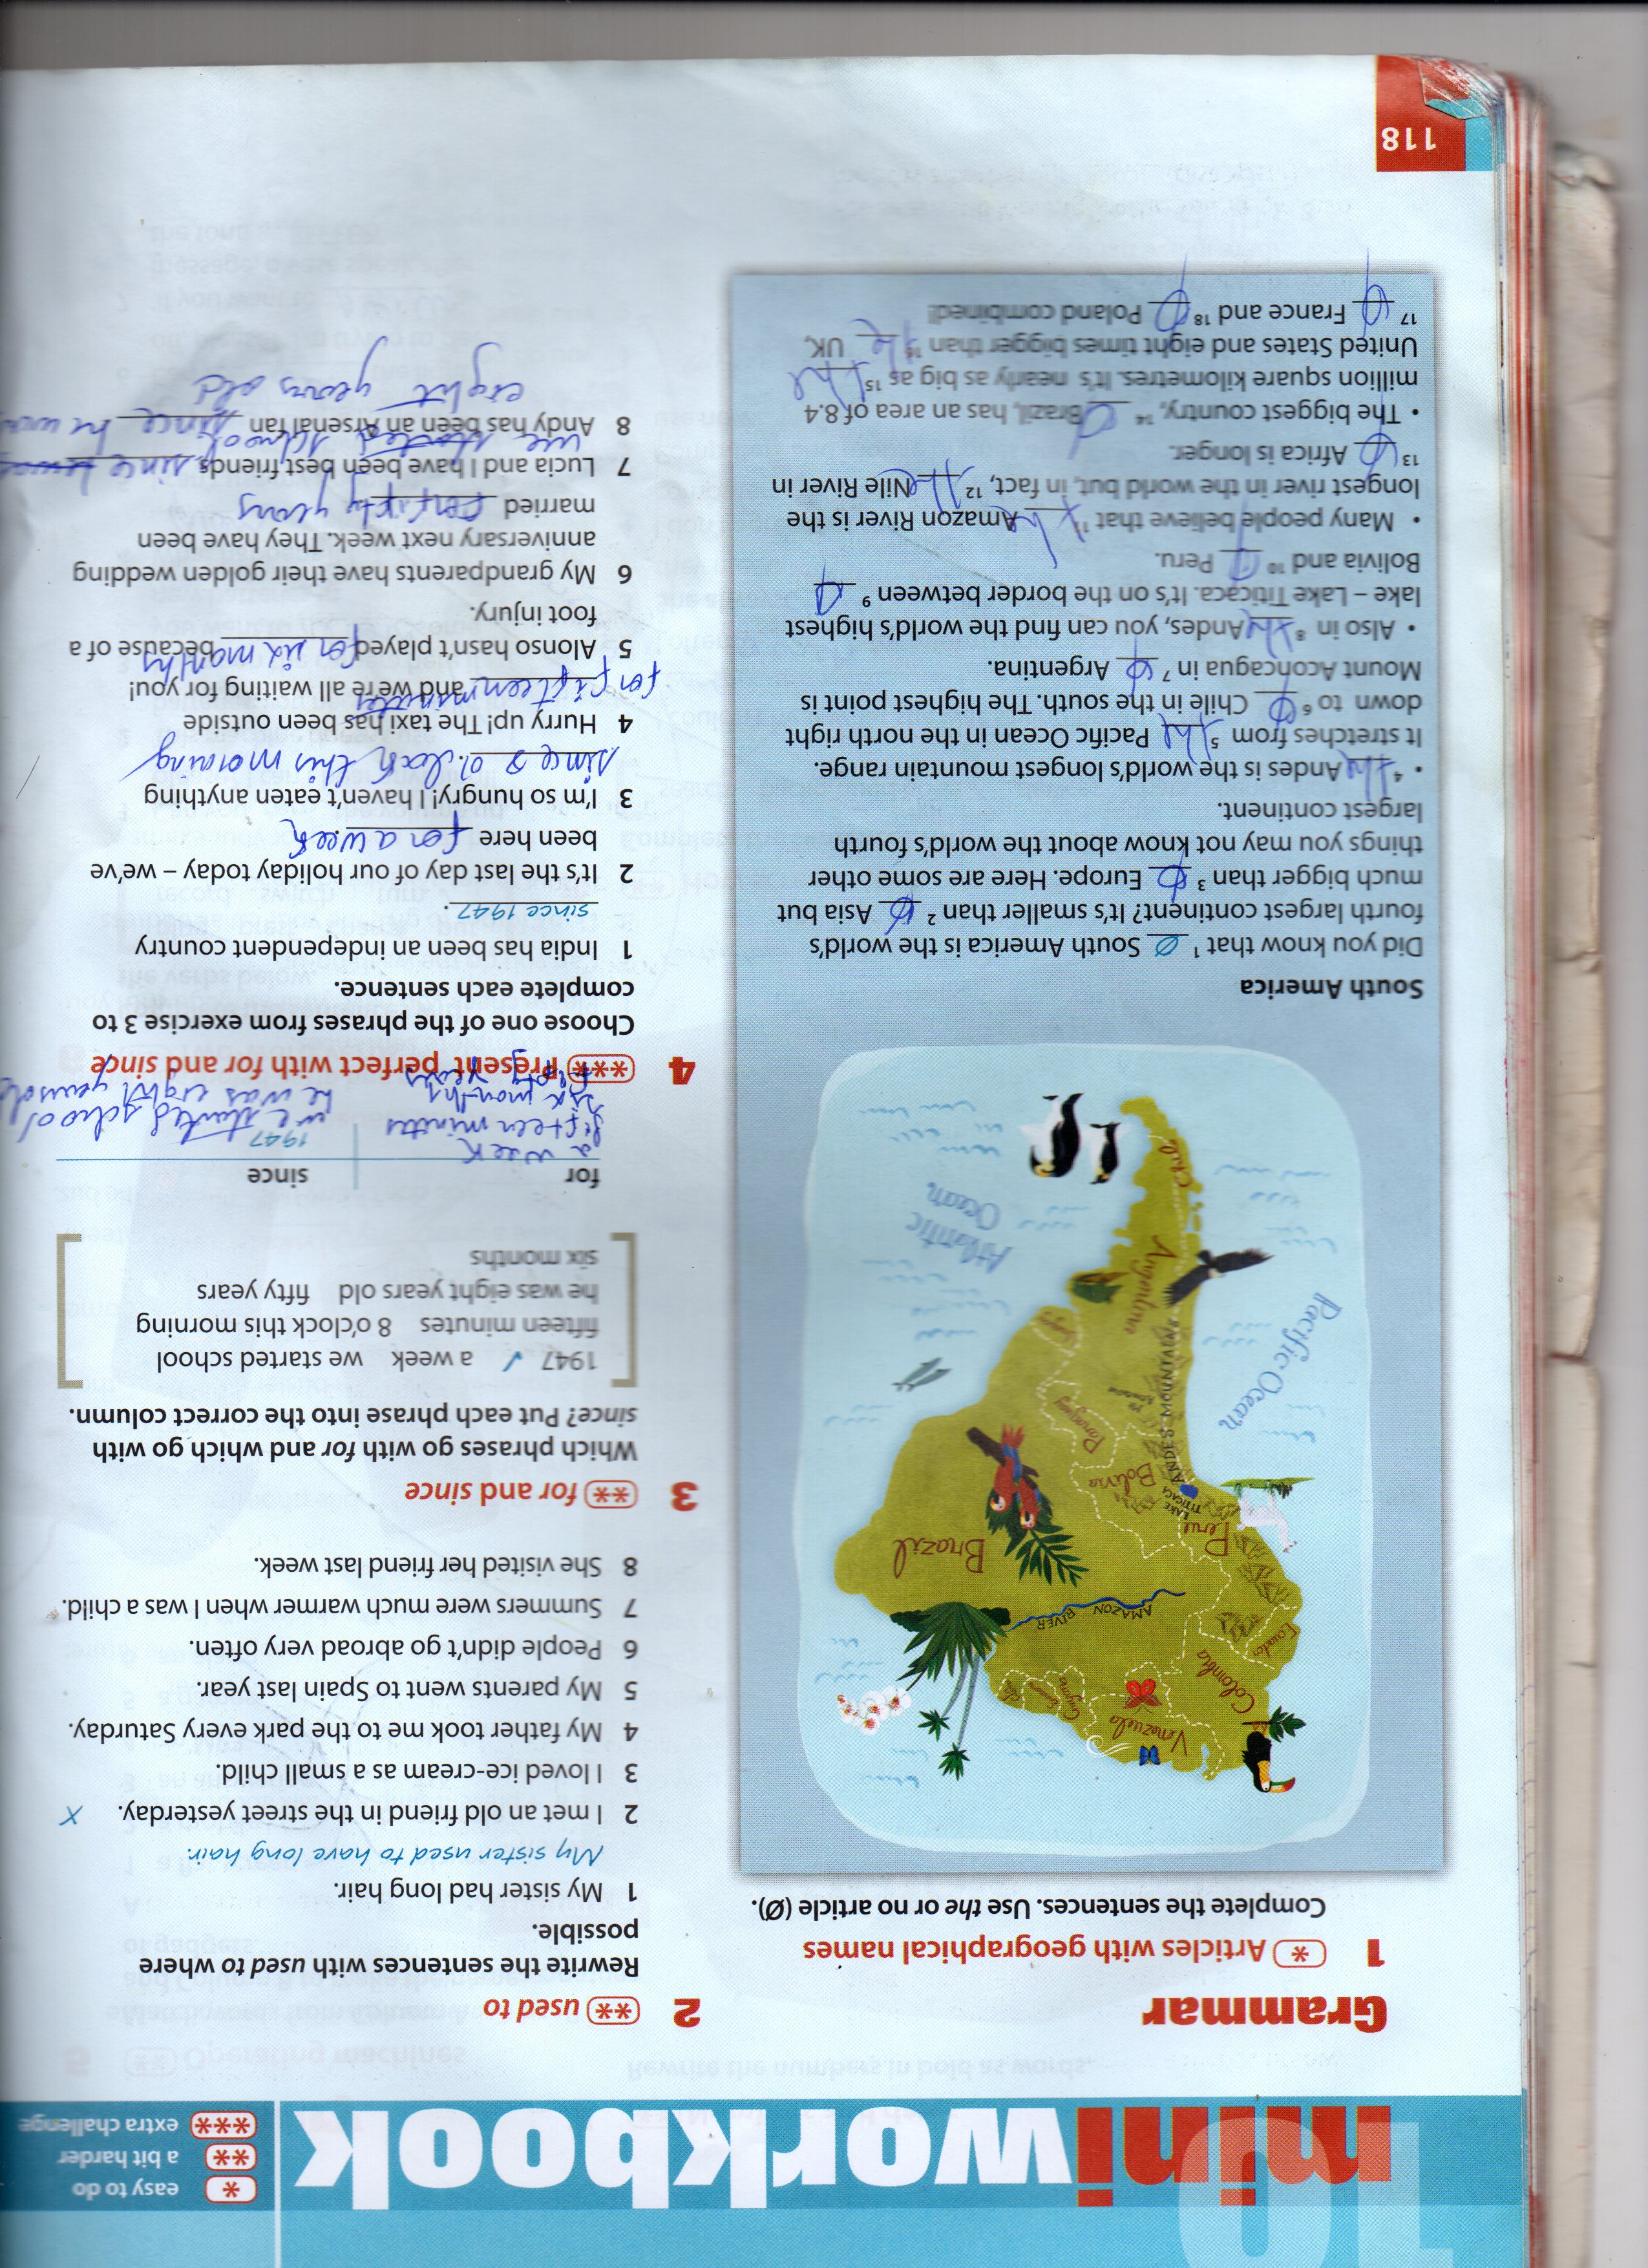 10
miniworkbook
* easy to do
** a bit harder
*** extra challenge
Grammar
1 * Articles with geographical names
Complete the sentences. Use the or no article (Ø).
Venezuela
Colombia
Ecuador
AMAZON RIVER
Peru
Brazil
LAKE TITICACA
Bolivia
ANDES MOUNTAINS
Paraguay
Argentina
Pacific Ocean
Atlantic Ocean
South America
Did you know that 1 Ø South America is the world's
fourth largest continent? It's smaller than 2 Ø Asia but
much bigger than 3 Ø Europe. Here are some other
things you may not know about the world's fourth
largest continent.
• 4 the Andes is the world's longest mountain range.
It stretches from 5 the Pacific Ocean in the north right
down to 6 Ø Chile in the south. The highest point is
Mount Aconcagua in 7 Ø Argentina.
• Also in 8 the Andes, you can find the world's highest
lake – Lake Titicaca. It's on the border between 9 Ø
Bolivia and 10 Ø Peru.
• Many people believe that 11 the Amazon River is the
longest river in the world but, in fact, 12 the Nile River in
13 Ø Africa is longer.
• The biggest country, 14 Ø Brazil, has an area of 8.4
million square kilometres. It's nearly as big as 15 the
United States and eight times bigger than 16 the UK,
17 Ø France and 18 Ø Poland combined!
118
2 ** used to
Rewrite the sentences with used to where
possible.
1 My sister had long hair.
My sister used to have long hair.
2 I met an old friend in the street yesterday. X
3 I loved ice-cream as a small child.
4 My father took me to the park every Saturday.
5 My parents went to Spain last year.
6 People didn't go abroad very often.
7 Summers were much warmer when I was a child.
8 She visited her friend last week.
3 ** for and since
Which phrases go with for and which go with
since? Put each phrase into the correct column.
1947 ✓ a week we started school
fifteen minutes 8 o'clock this morning
he was eight years old fifty years
six months
for since
a week 1947
fifteen minutes we started school
six months he was eight years old
fifty years
4 *** Present perfect with for and since
Choose one of the phrases from exercise 3 to
complete each sentence.
1 India has been an independent country
since 1947.
2 It's the last day of our holiday today – we've
been here for a week.
3 I'm so hungry! I haven't eaten anything
since 8 o'clock this morning
4 Hurry up! The taxi has been outside
for fifteen minutes and we're all waiting for you!
5 Alonso hasn't played for six months because of a
foot injury.
6 My grandparents have their golden wedding
anniversary next week. They have been
married for fifty years
7 Lucia and I have been best friends since
we started school.
8 Andy has been an Arsenal fan since he was
eight years old